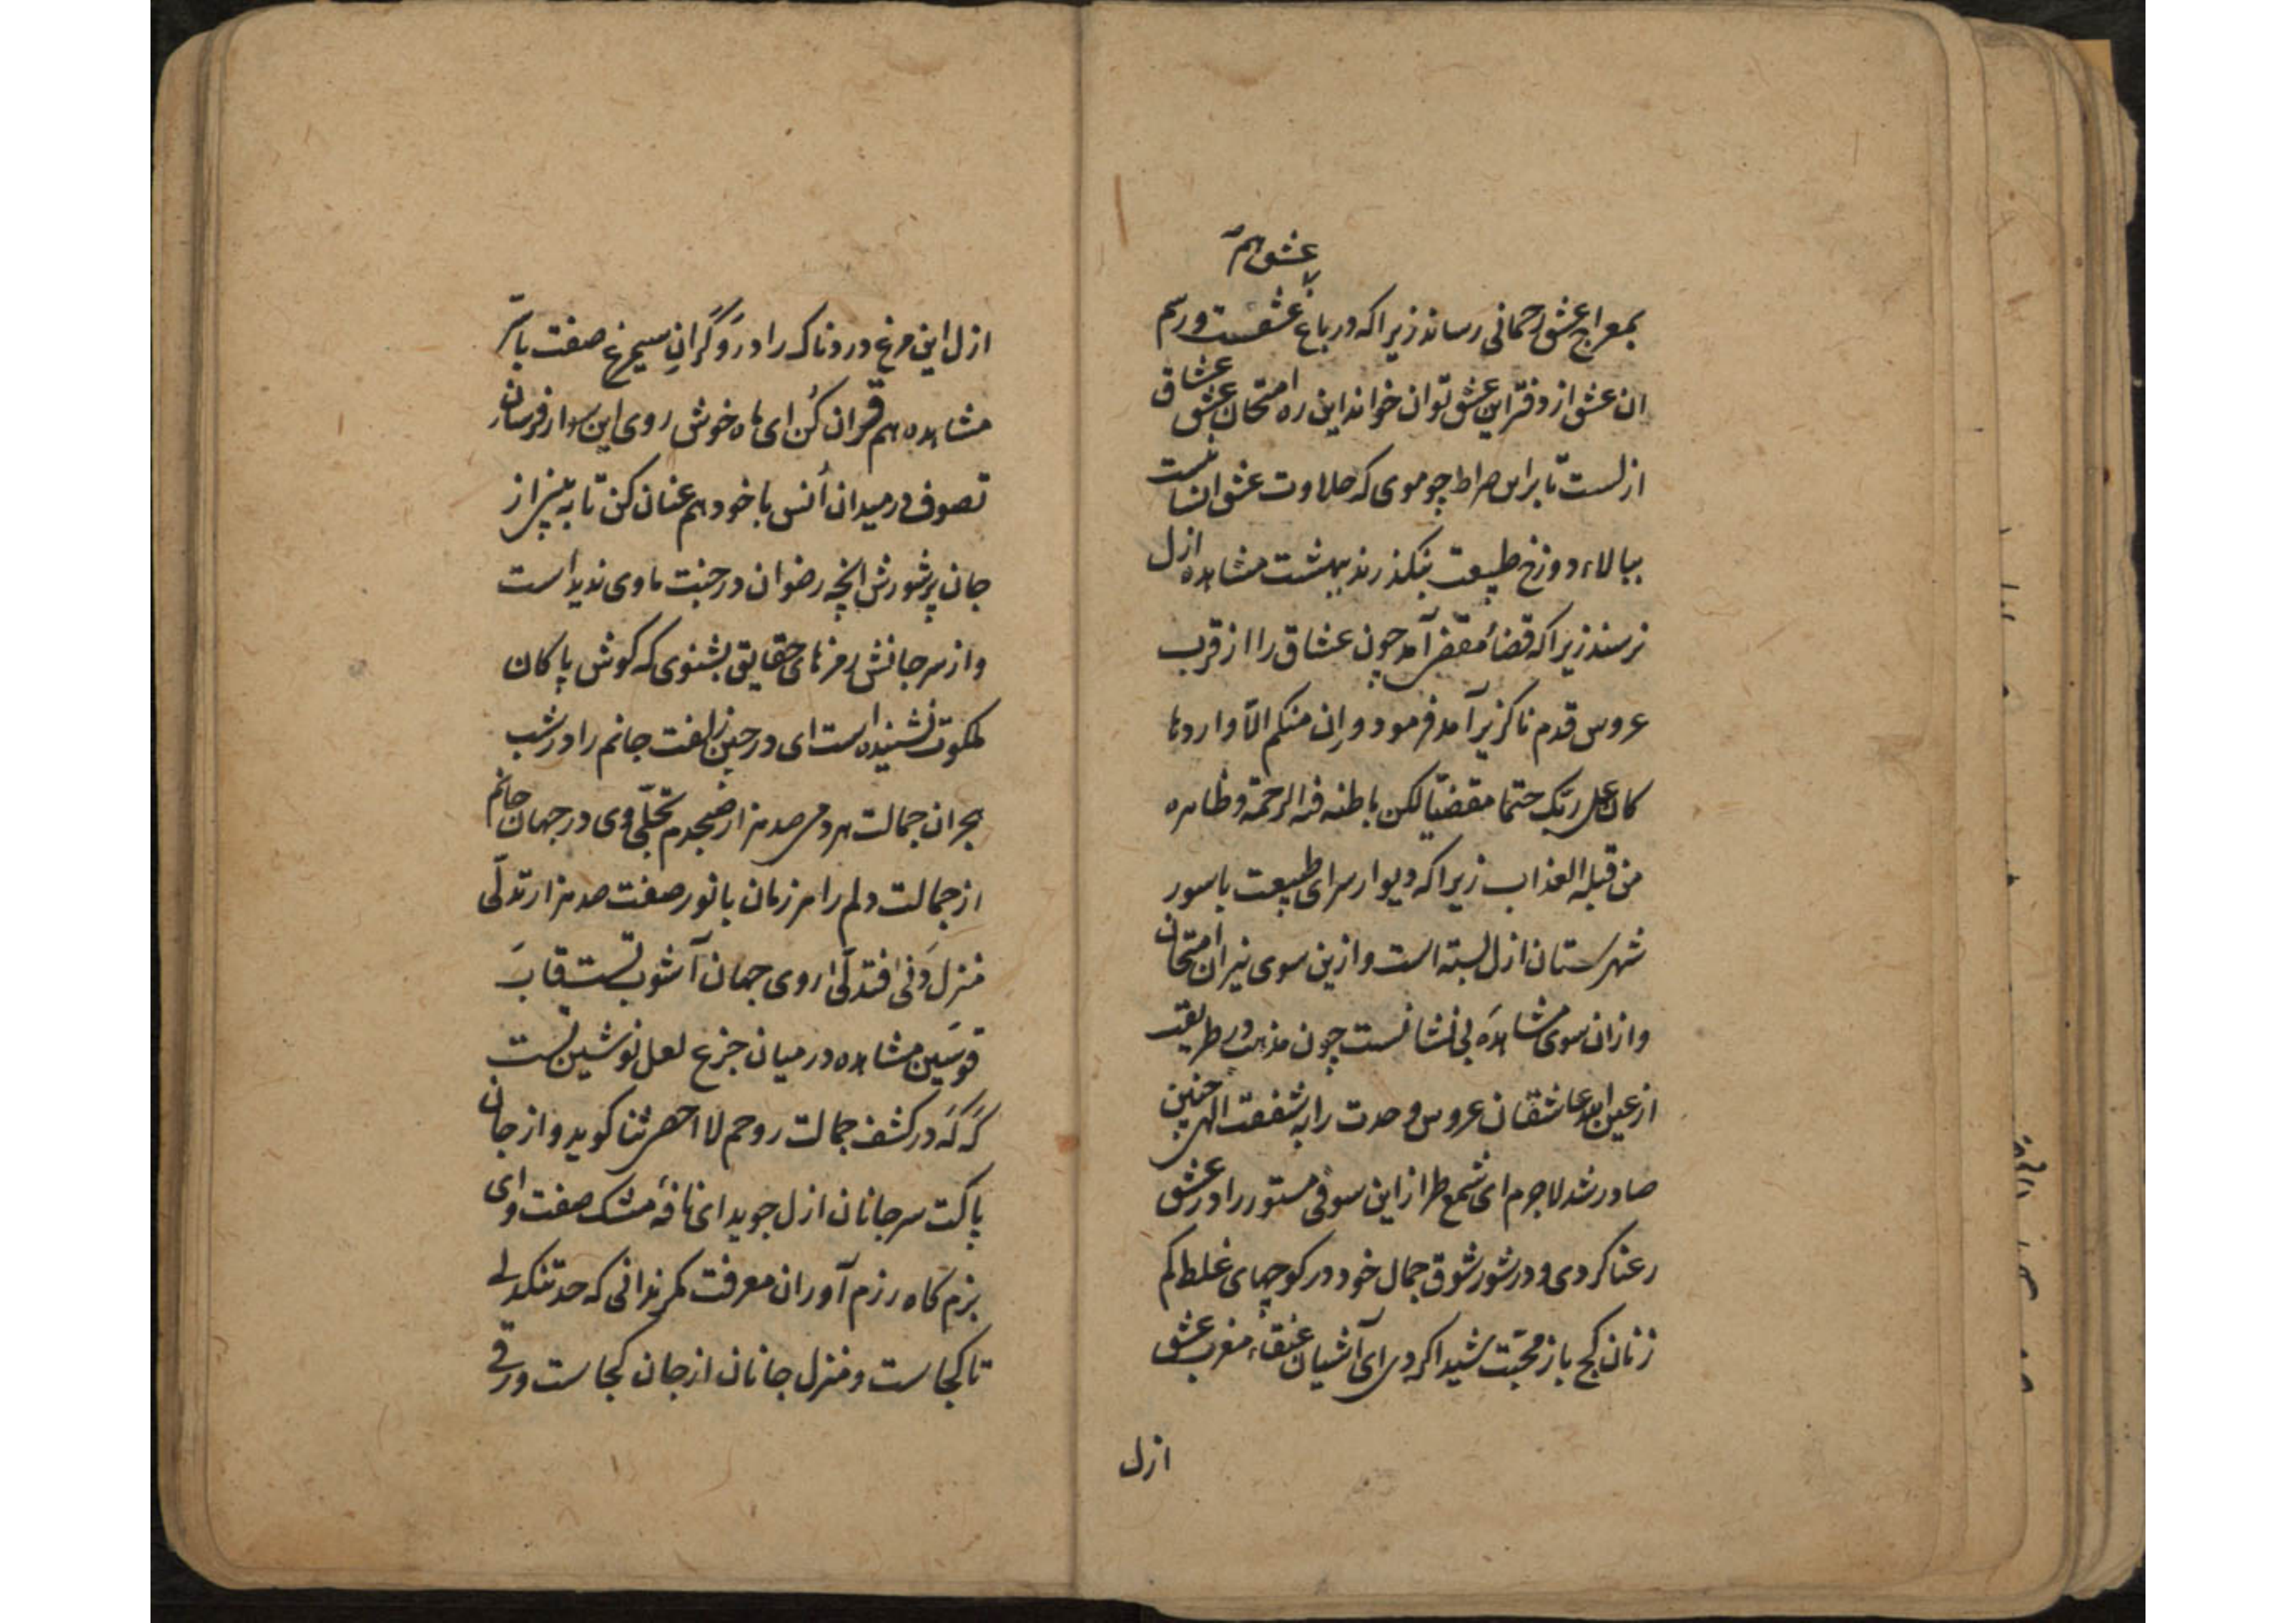 عشق هم
بمعراج عشق رحمانی رساند زیرا که در باغ عشقست و رسم
ان عشق از دفتر این عشق توان خواند این ره امتحان عشق عشاق
ازلست تا بر این صراط چو موی که حلاوت عشق انسانست
ببالاء دوزخ طبیعت بنکذرند ببهشت مشاهده ازل
نرسند زیرا که قضا مقضی آمد چون عشاق را از قرب
عروس قدم ناکزیر آمد فرمود و ان منکم الّا واردها
کان علی ربّک حتما مقضیّا لکن باطنه فیه الرحمة و ظاهره
من قبله العذاب زیرا که دیوار سرای طبیعت با سور
شهرستان ازل بسته است و ازین سوی نیران امتحان
و ازان سوی مشاهدهٔ بی نشانست چون مذهب طریقت
از عین ابد عاشقان عروس وحدت را به شفقت الهی چنین
صادر شد لاجرم ای شمع طراز این سوفی مستور را در عشق
رعنا کردی و در شور شوق جمال خود در کوچهای غلط کم
زنان کج باز محبّت شیدا کردی ای آشیان عنقاء مغرب عشق
ازل
ازل این مرغ دردناک را در وکر ان سیمرغ صفت با سرّ
مشاهده هم قران کن ای ماه خوش روی این سوار فرسان
تصوف در میدان اُنس با خود هم عنان کن تا به بینی از
جان پرشورش انچه رضوان در جنت ماوی ندیداست
و از سر جانش رمزهای حقایق بشنوی که کوش پاکان
ملکوت نشنیده است ای در چین زلفت جانم را در شب
هجران جمالت هر دمی صد هزار صبحدم تجلّی وی در جهان جانم
از جمالت دلم را هر زمان با نور صفت صد هزار تدلّی
منزل دَنی فتدلّی روی جهان آشوب تست قابَ
قوسَین مشاهده در میان جزع لعل نوشین تست
که که در کشف جمالت روحم لا احصی ثنا کوید و از جان
پاکت سر جانان ازل جوید ای نافهٔ مشک صفت وای
بزم کاه رزم آوران معرفت مکر ندانی که حد تنکدلی
تا کجاست و منزل جانان از جان کجاست ورقی